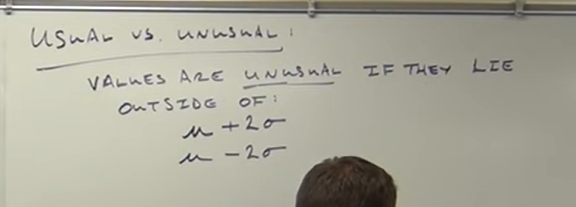 USUAL VS. UNUSUAL:
VALUES ARE UNUSUAL IF THEY LIE
OUTSIDE OF:
μ + 2σ
μ - 2σ